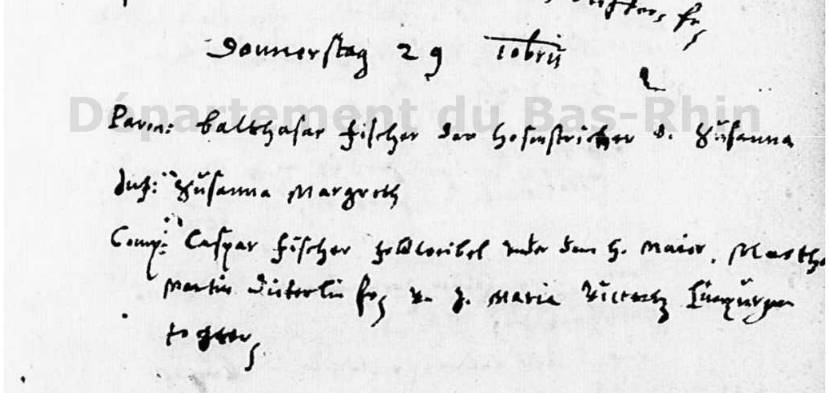 Donnerstag 29 10bris
Département du Bas-Rhin
Paren: Balthasar Fischer der Hosenstricker v. Susanna
Inf: Susanna Margreth
Comp: Caspar Fischer Feldweibel under dem H. Maior, Martha
Martin fr. v. J. Maria
tochter